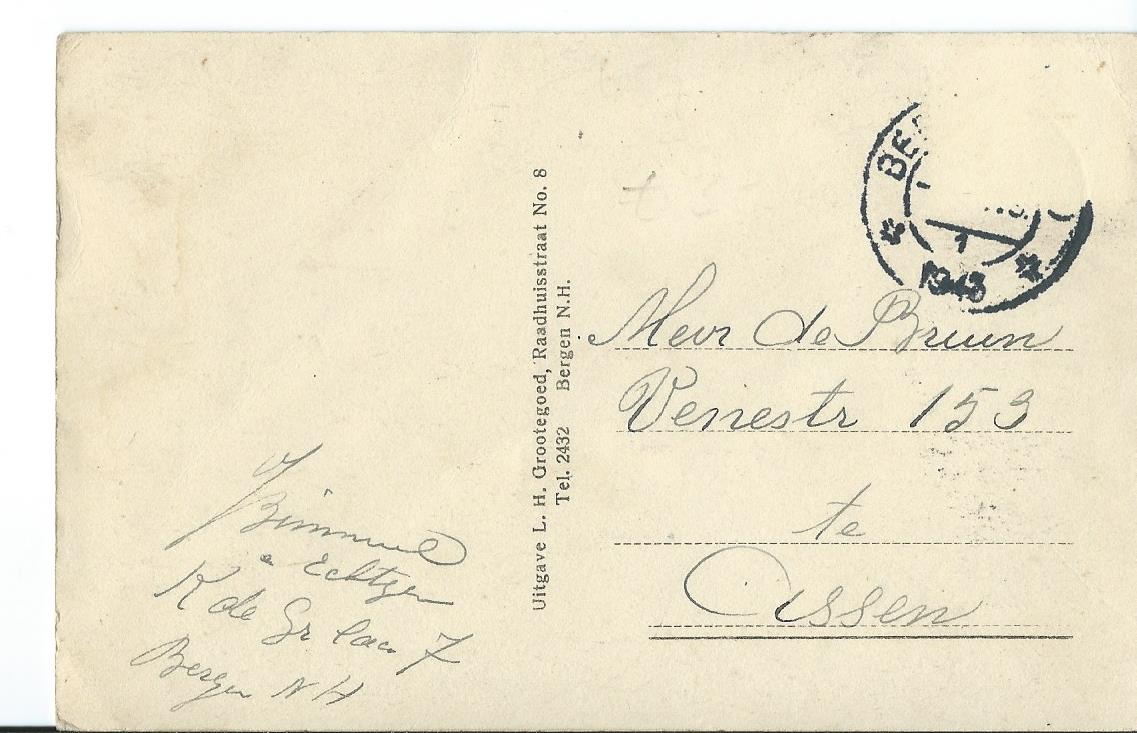 BE
1
1943
Uitgave L. H. Grootegoed, Raadhuisstraat No. 8
Tel. 2432 Bergen N.H.
Mevr de Bruun
Venestr 153
te
Assen
K de Gr laan 7
Bergen NH